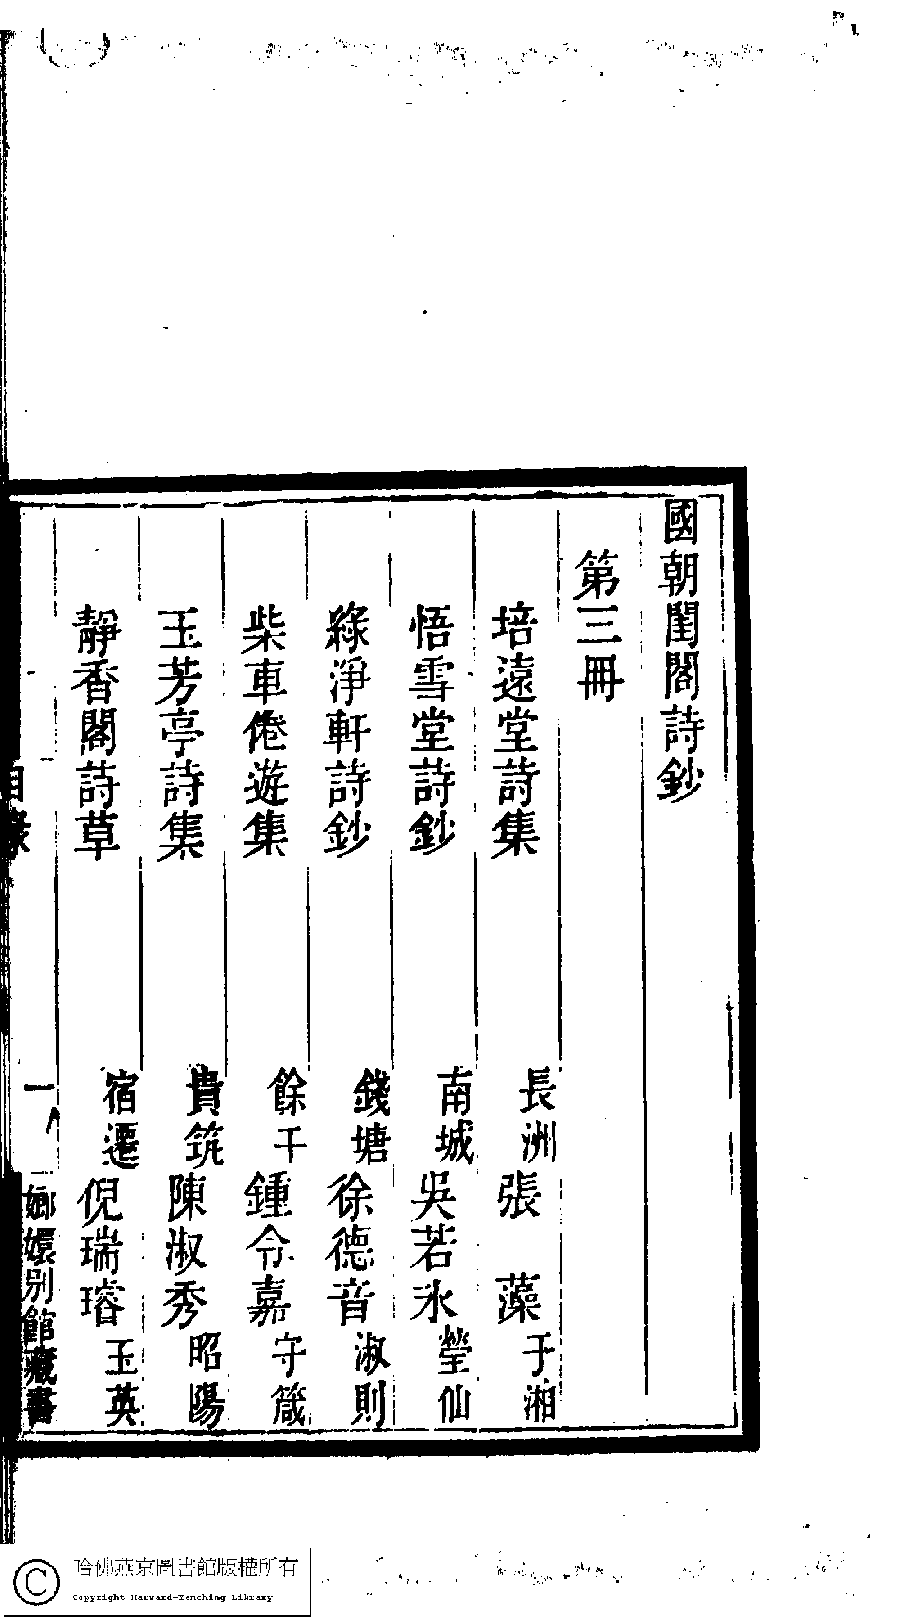 國朝閨閣詩鈔
第三冊
培遠堂詩集 長洲 張 藻 于湘
悟雪堂詩鈔 南城 吳若氷 瑩仙
綠淨軒詩鈔 錢塘 徐德音 淑則
柴車倦遊集 餘干 鍾令嘉 守箴
玉芳亭詩集 貴筑 陳淑秀 昭陽
靜香閣詩草 宿遷 倪瑞璿 玉英
目錄 一 嫏嬛別館藏書
哈佛燕京圖書館版權所有
Copyright Harvard-Yenching Library